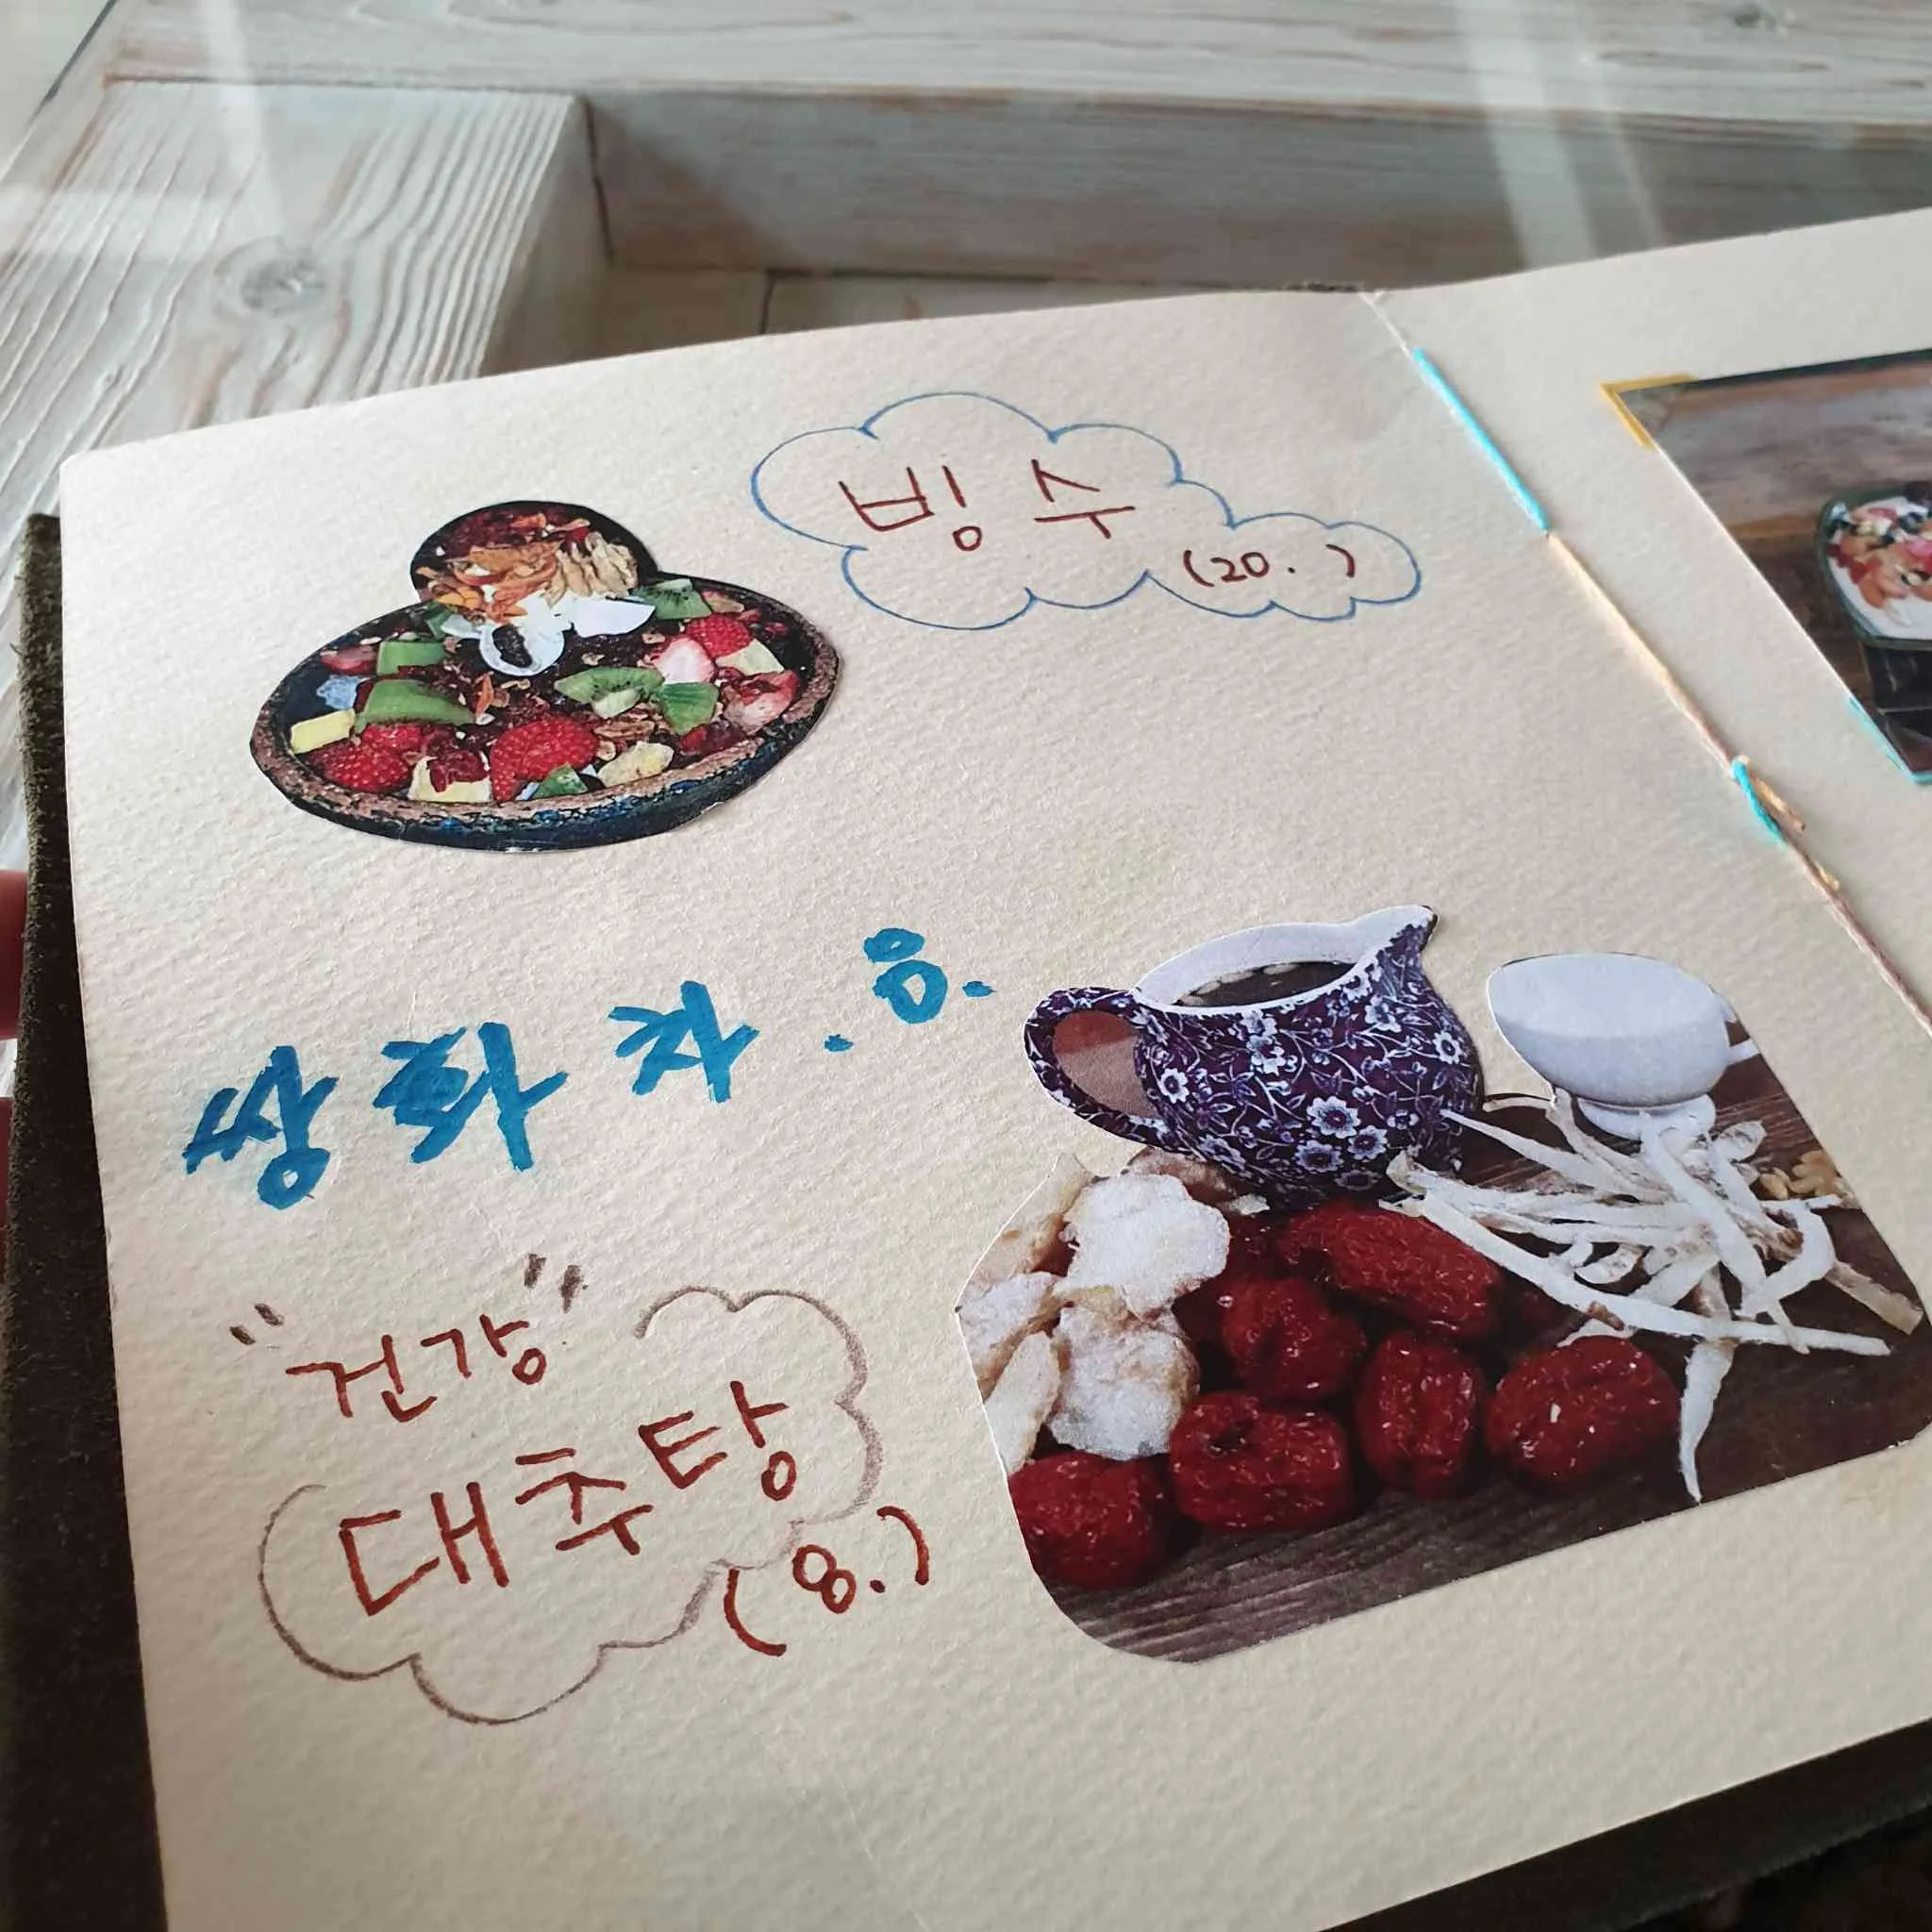 빙수
(20. )
쌍화차. 음.
"건강"
대추탕
(8.)